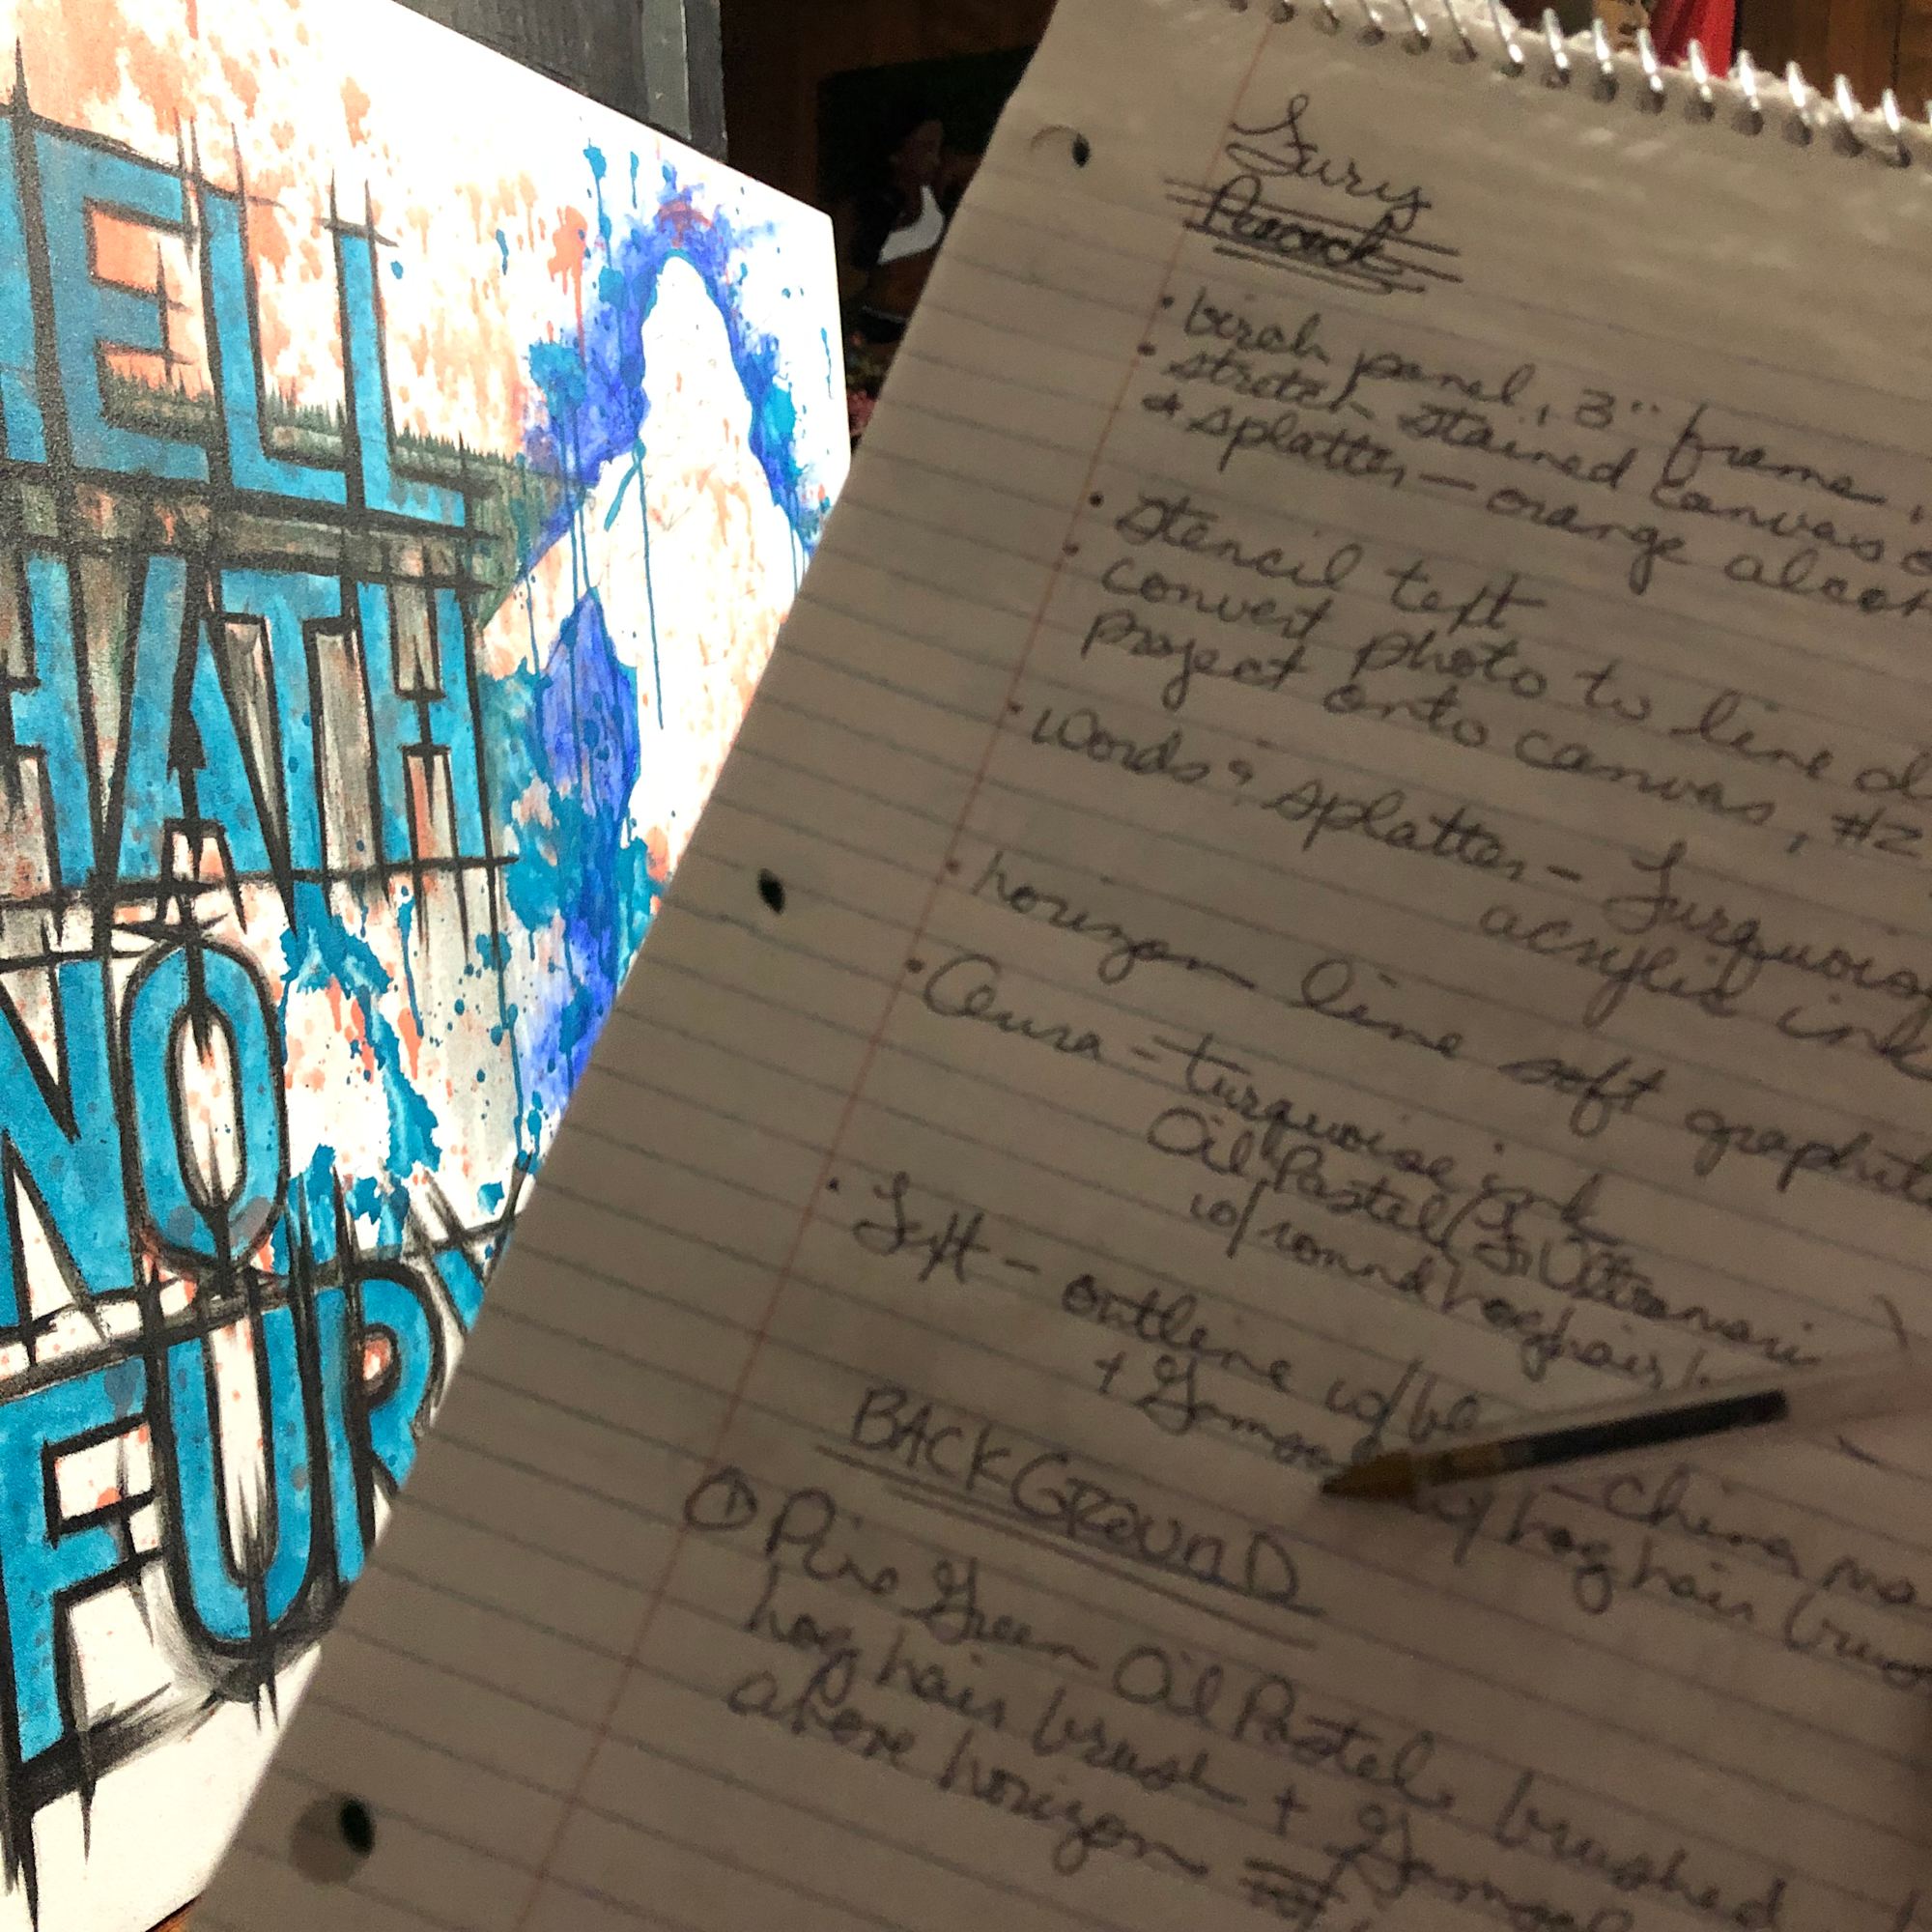 HELL
HATH
NO
FURY
Fury
Peacock
• birch panel, 3" frame,
• stretch stained canvas
* splatter – orange alcoh
• stencil text
• convert photo to line d
project onto canvas, #2
• Words & splatter – Turquois
acrylic ink
• horizon line soft graphit
• Ceura = turquoise ink
Oil Pastel
w/ round hog hair
• Text – outline w/ bl – China ma
+ Gamso w/ hog hair brus
BACKGROUND
① Pine Green Oil Pastel, brushed
hog hair brush + Gamsol
above horizon